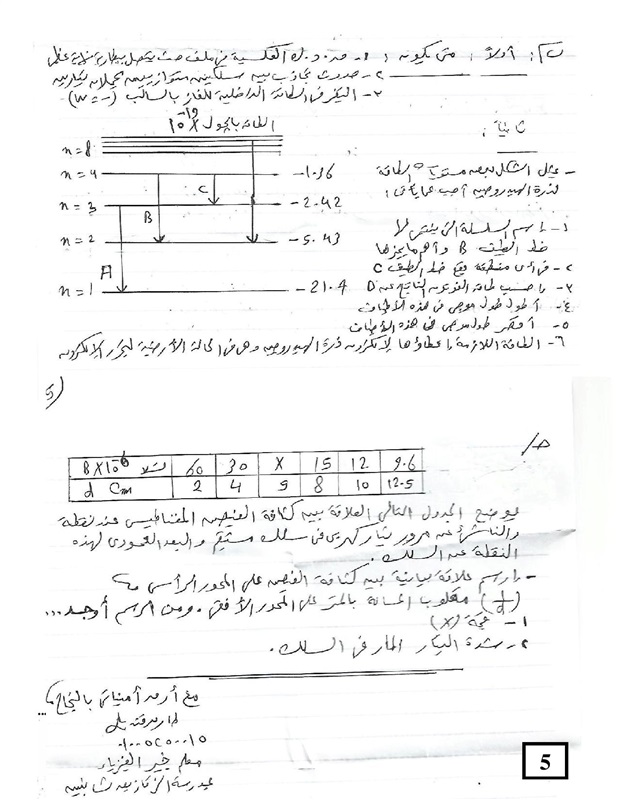 ب) أولاً : متى تكون : ١- ق.د.ك العكسية فى ملف حث يتصل ببطارية نهاية عظمى
٢- حدوث تجاذب بين سلكين متوازيين يحملان تيارين
٣- التغير فى الطاقة الداخلية للغاز بالسالب
ثانياً :
الطاقة بالجول X 10-19
n = 8
n = 4
n = 3
n = 2
n = 1
-1.36
-2.42
-5.43
-21.4
A
B
C
- يمثل الشكل بعض مستويات الطاقة
لذرة الهيدروجين أجب عما يأتى :
١- ما اسم السلسلة التى ينتمى لها
خط الطيف B وأهم ما يميزها
٢- فى أى منطقة يقع خط الطيف C
٣- احسب طاقة الفوتون الناتج عن D
٤- أطول طول موجى فى هذه الأطياف
٥- أقصر طول موجى فى هذه الأطياف
٦- الطاقة اللازم إعطاؤها لإلكترون ذرة الهيدروجين وهى فى الحالة الأرضية لتحرر الإلكترون
(5
جـ/
B X 10-6 تسلا 60 30 X 15 12 9.6
d Cm 2 4 5 8 10 12.5
يوضح الجدول التالى العلاقة بين كثافة الفيض المغناطيسى عند نقطة
والناشئ عن مرور تيار كهربى فى سلك مستقيم والبعد العمودى لهذه
النقطة عن السلك .
- ارسم علاقة بيانية بين كثافة الفيض على المحور الرأسى ،
(1/d) مقلوب المسافة بالمتر على المحور الأفقى . ومن الرسم أوجد ...
١- قيمة (X)
٢- شدة التيار المار فى السلك .
مع أرق أمنياتى بالنجاح
معلم خبير الفيزياء
بمدرسة الزقازيق الثانوية
5